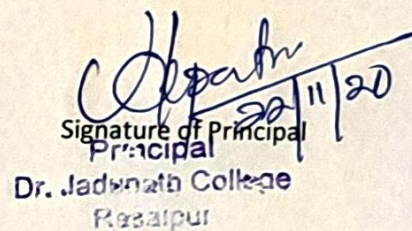 22/11/20
Signature of Principal
Principal
Dr. Jadunath College
Rasalpur